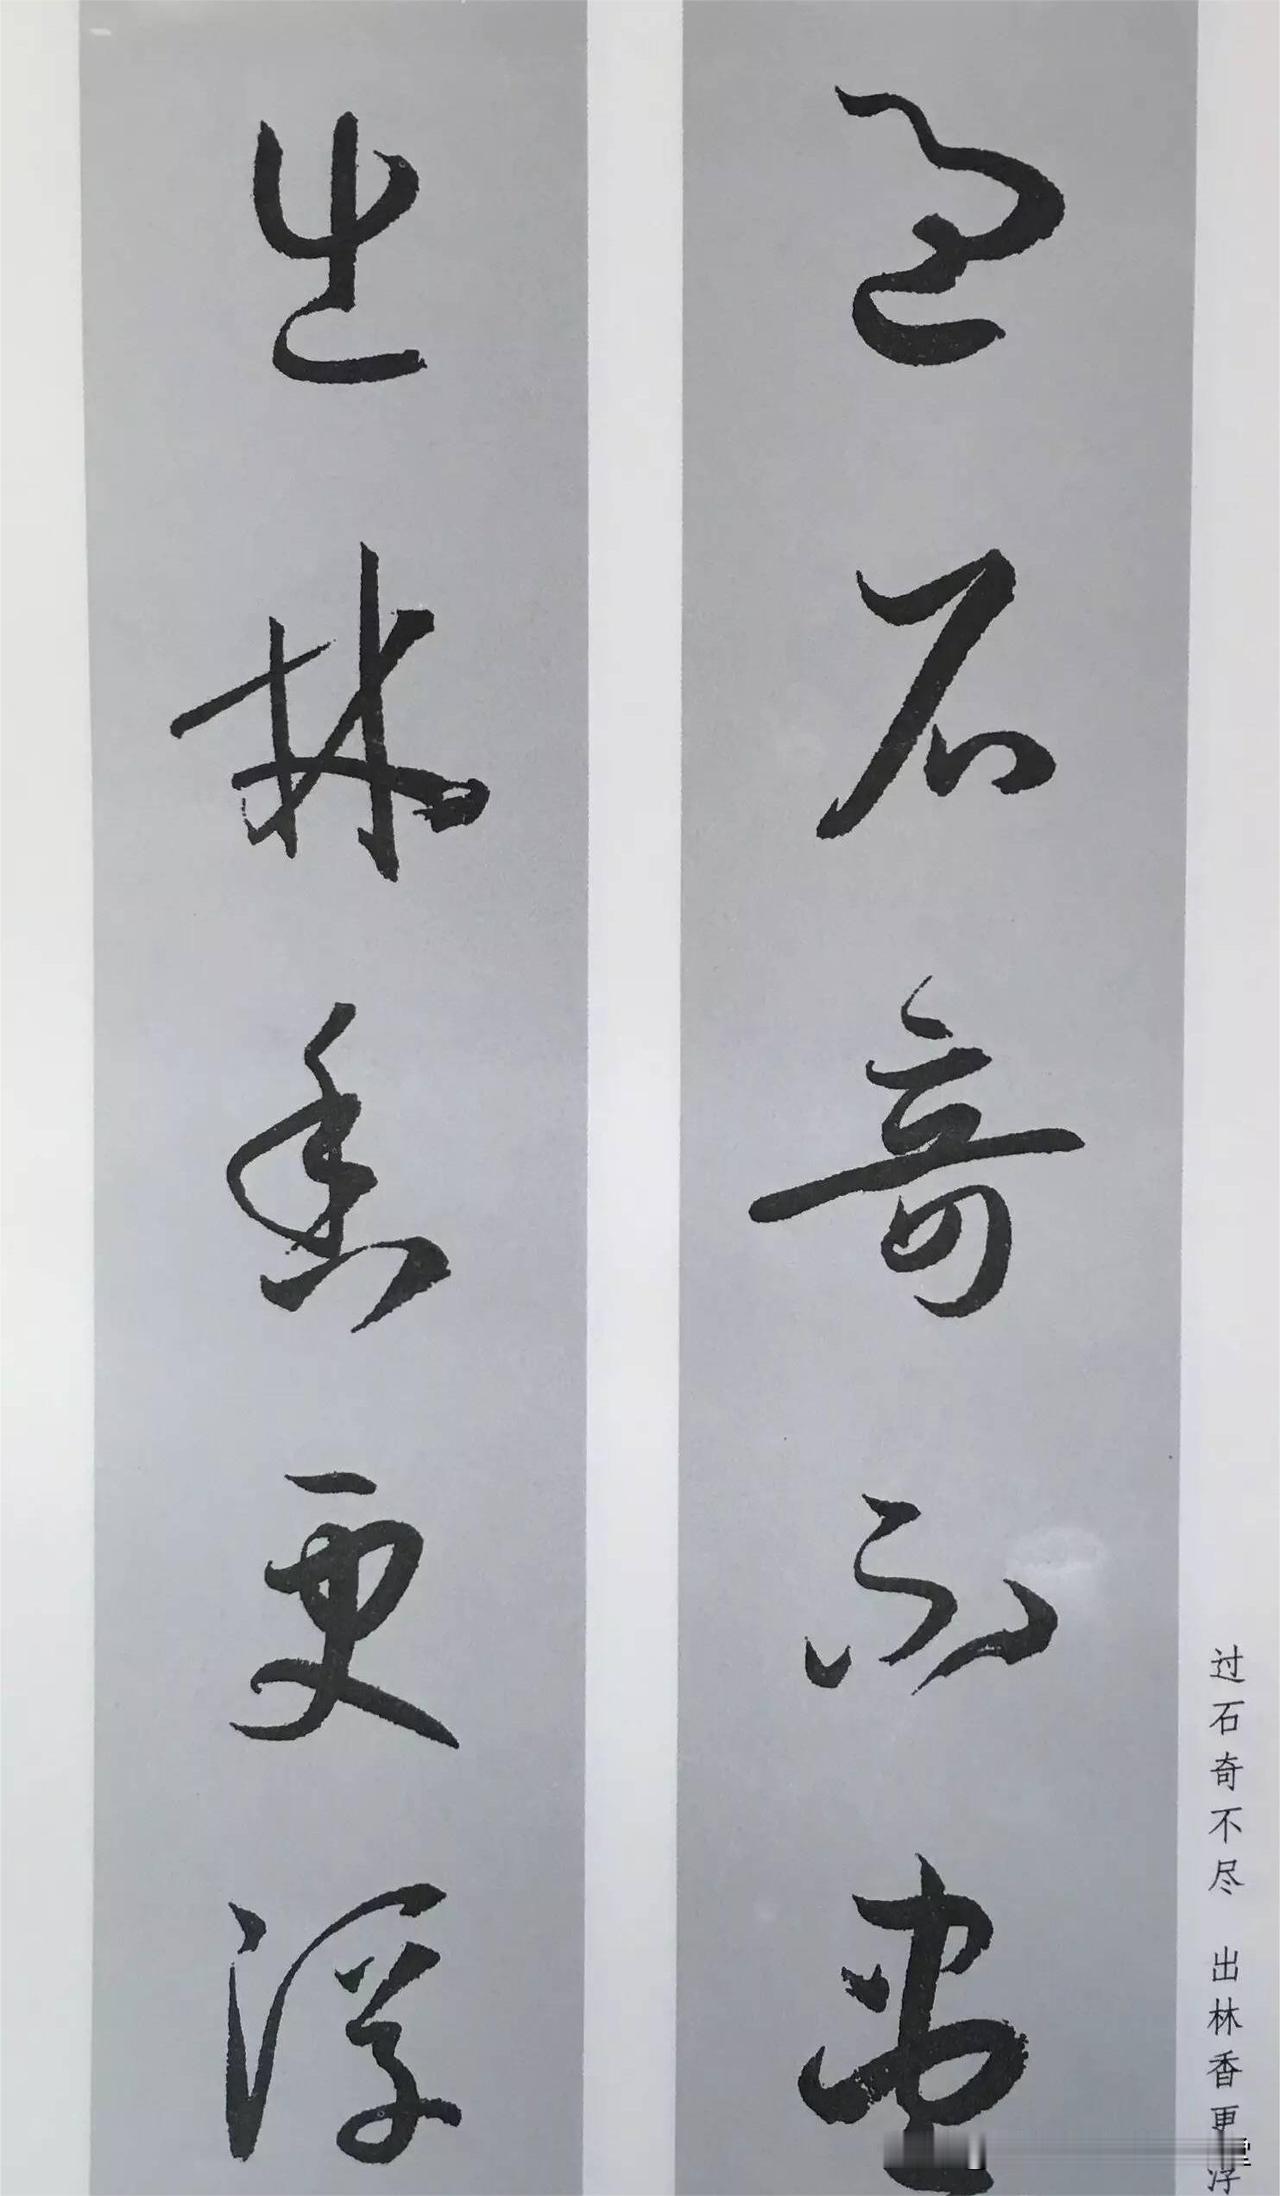 过石奇不尽
出林香更浮
过石奇不尽 出林香更浮